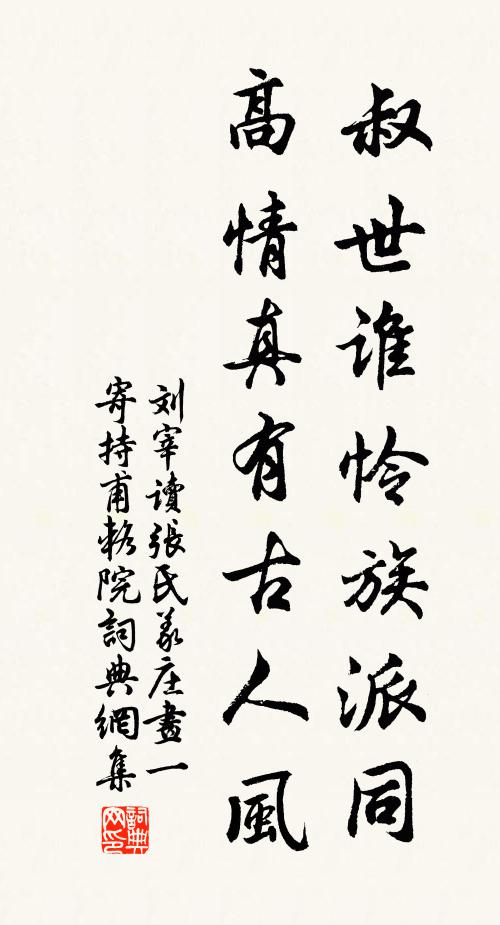 叔世谁怜族派同
高情真有古人風
刘宰讀張氏義庄畫一
寄持甫敕院詞典網集
詞典网印